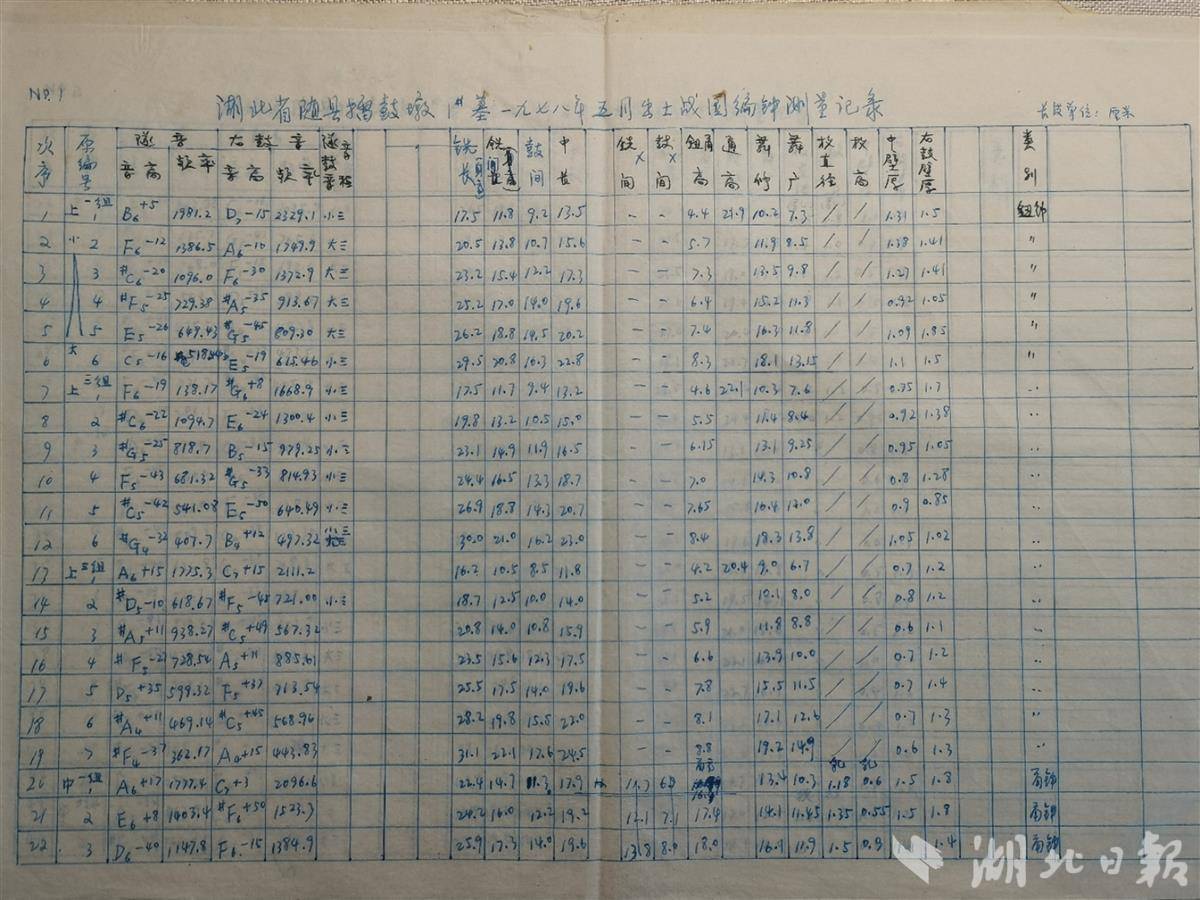 NO.1
湖北省随县擂鼓墩1#墓一九七八年五月出土战国编钟测量记录
长度单位：厘米
次序 原编号 隧音 音高 频率 右鼓音 音高 频率 隧鼓音音程 铣长 铣间 鼓间 中长 铣间 鼓间 高 通高 舞修 舞广 枚直径 枚高 中壁厚 右鼓壁厚 类别
1 上一组1 B6+5 1981.2 D7-15 2329.1 小三 17.5 11.8 9.2 13.5 - - 4.4 21.9 10.2 7.3 / / 1.31 1.5 钮钟
2 小 2 F6-12 1386.5 A6-10 1749.9 大三 20.5 13.8 10.7 15.6 - - 5.7 11.9 8.5 / / 1.38 1.41 〃
3 3 #C6-20 1096.0 F6-30 1372.9 大三 23.2 15.4 12.2 17.3 - - 7.3 13.5 9.8 / / 1.27 1.41 〃
4 4 #F5-25 729.38 #A5-35 913.67 大三 25.2 17.0 14.0 19.6 - - 6.4 15.2 11.3 / / 0.92 1.05 〃
5 5 E5-26 649.43 #G5-45 809.30 大三 26.2 18.8 14.5 20.2 - - 7.4 16.3 11.8 / / 1.09 1.85 〃
6 大 6 C5-16 E5-19 29.5 20.8 16.3 22.8 - - 8.3 18.1 13.15 / / 1.1 1.5 〃
7 上二组1 F6-19 138.17 #G6+8 1668.9 小三 17.5 11.7 9.4 13.2 - - 4.6 22.1 10.3 7.6 / / 0.75 1.7 〃
8 2 #C6-22 1094.7 E6-24 1300.4 小三 19.8 13.2 10.5 15.0 - - 5.5 11.4 8.4 / / 0.92 1.38 〃
9 3 #G5-25 818.7 B5-15 979.25 小三 23.1 14.9 11.9 16.5 - - 6.15 13.1 9.25 / / 0.95 1.05 〃
10 4 F5-43 681.32 #G5-33 814.93 小三 24.4 16.5 13.3 18.7 - - 7.0 14.3 10.8 / / 0.8 1.28 〃
11 5 #C5-42 541.08 E5-50 640.49 小三 26.9 18.8 14.3 20.7 - - 7.65 16.4 12.0 / / 0.9 0.85 〃
12 6 #G4-32 407.7 B4+12 497.32 小三 30.0 21.0 16.2 23.0 - - 8.4 18.3 13.8 / / 1.05 1.02 〃
13 上三组1 A6+15 1775.3 C7+15 2111.2 16.2 10.5 8.5 11.8 - - 4.2 20.4 9.0 6.7 / / 0.7 1.2 〃
14 2 #D5-10 618.67 #F5-45 721.00 小三 18.7 12.5 10.0 14.0 - - 5.2 10.1 8.0 / / 0.8 1.2 〃
15 3 #A5+11 938.27 #C5+49 567.32 20.8 14.0 10.8 15.9 - - 5.9 11.8 8.8 / / 0.6 1.1 〃
16 4 #F5-27 728.54 A5+11 885.61 23.5 15.6 12.3 17.5 - - 6.6 13.9 10.0 / / 0.7 1.2 〃
17 5 D5+35 599.32 F5+37 713.54 25.5 17.5 14.0 19.6 - - 7.8 15.5 11.5 / / 0.7 1.4 〃
18 6 #A4+11 469.14 #C5+45 568.96 28.2 19.8 15.5 22.0 - - 8.1 17.1 12.6 / / 0.7 1.3 〃
19 7 #F4-37 362.17 A4+15 443.83 31.1 22.1 17.6 24.5 - - 8.8 19.2 14.9 / / 0.6 1.3 〃
20 中一组1 A6+17 1777.4 C7+3 2096.6 22.4 14.7 11.3 17.9 11.7 13.4 10.3 1.18 0.6 1.5 1.8 甬钟
21 2 E6+8 1403.4 #F6+50 1523.3 24.2 16.0 12.2 19.2 12.1 7.1 17.4 14.1 11.45 1.35 0.55 1.5 1.8 甬钟
22 3 D6-40 1147.8 F6-15 1384.9 25.9 17.3 14.0 19.6 13.8 8.0 18.0 16.1 11.9 1.5 0.9 1.4 甬钟
湖北日报